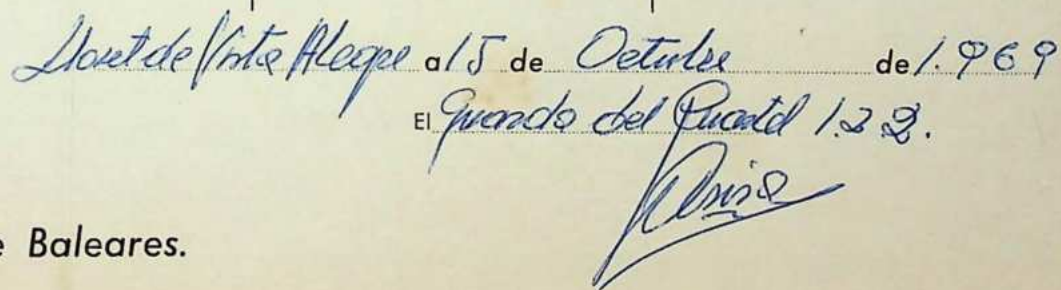 Lloret de Vista Alegre a 15 de Octubre de 1.969
El Guarda del Cuartel 1.22.
e Baleares.